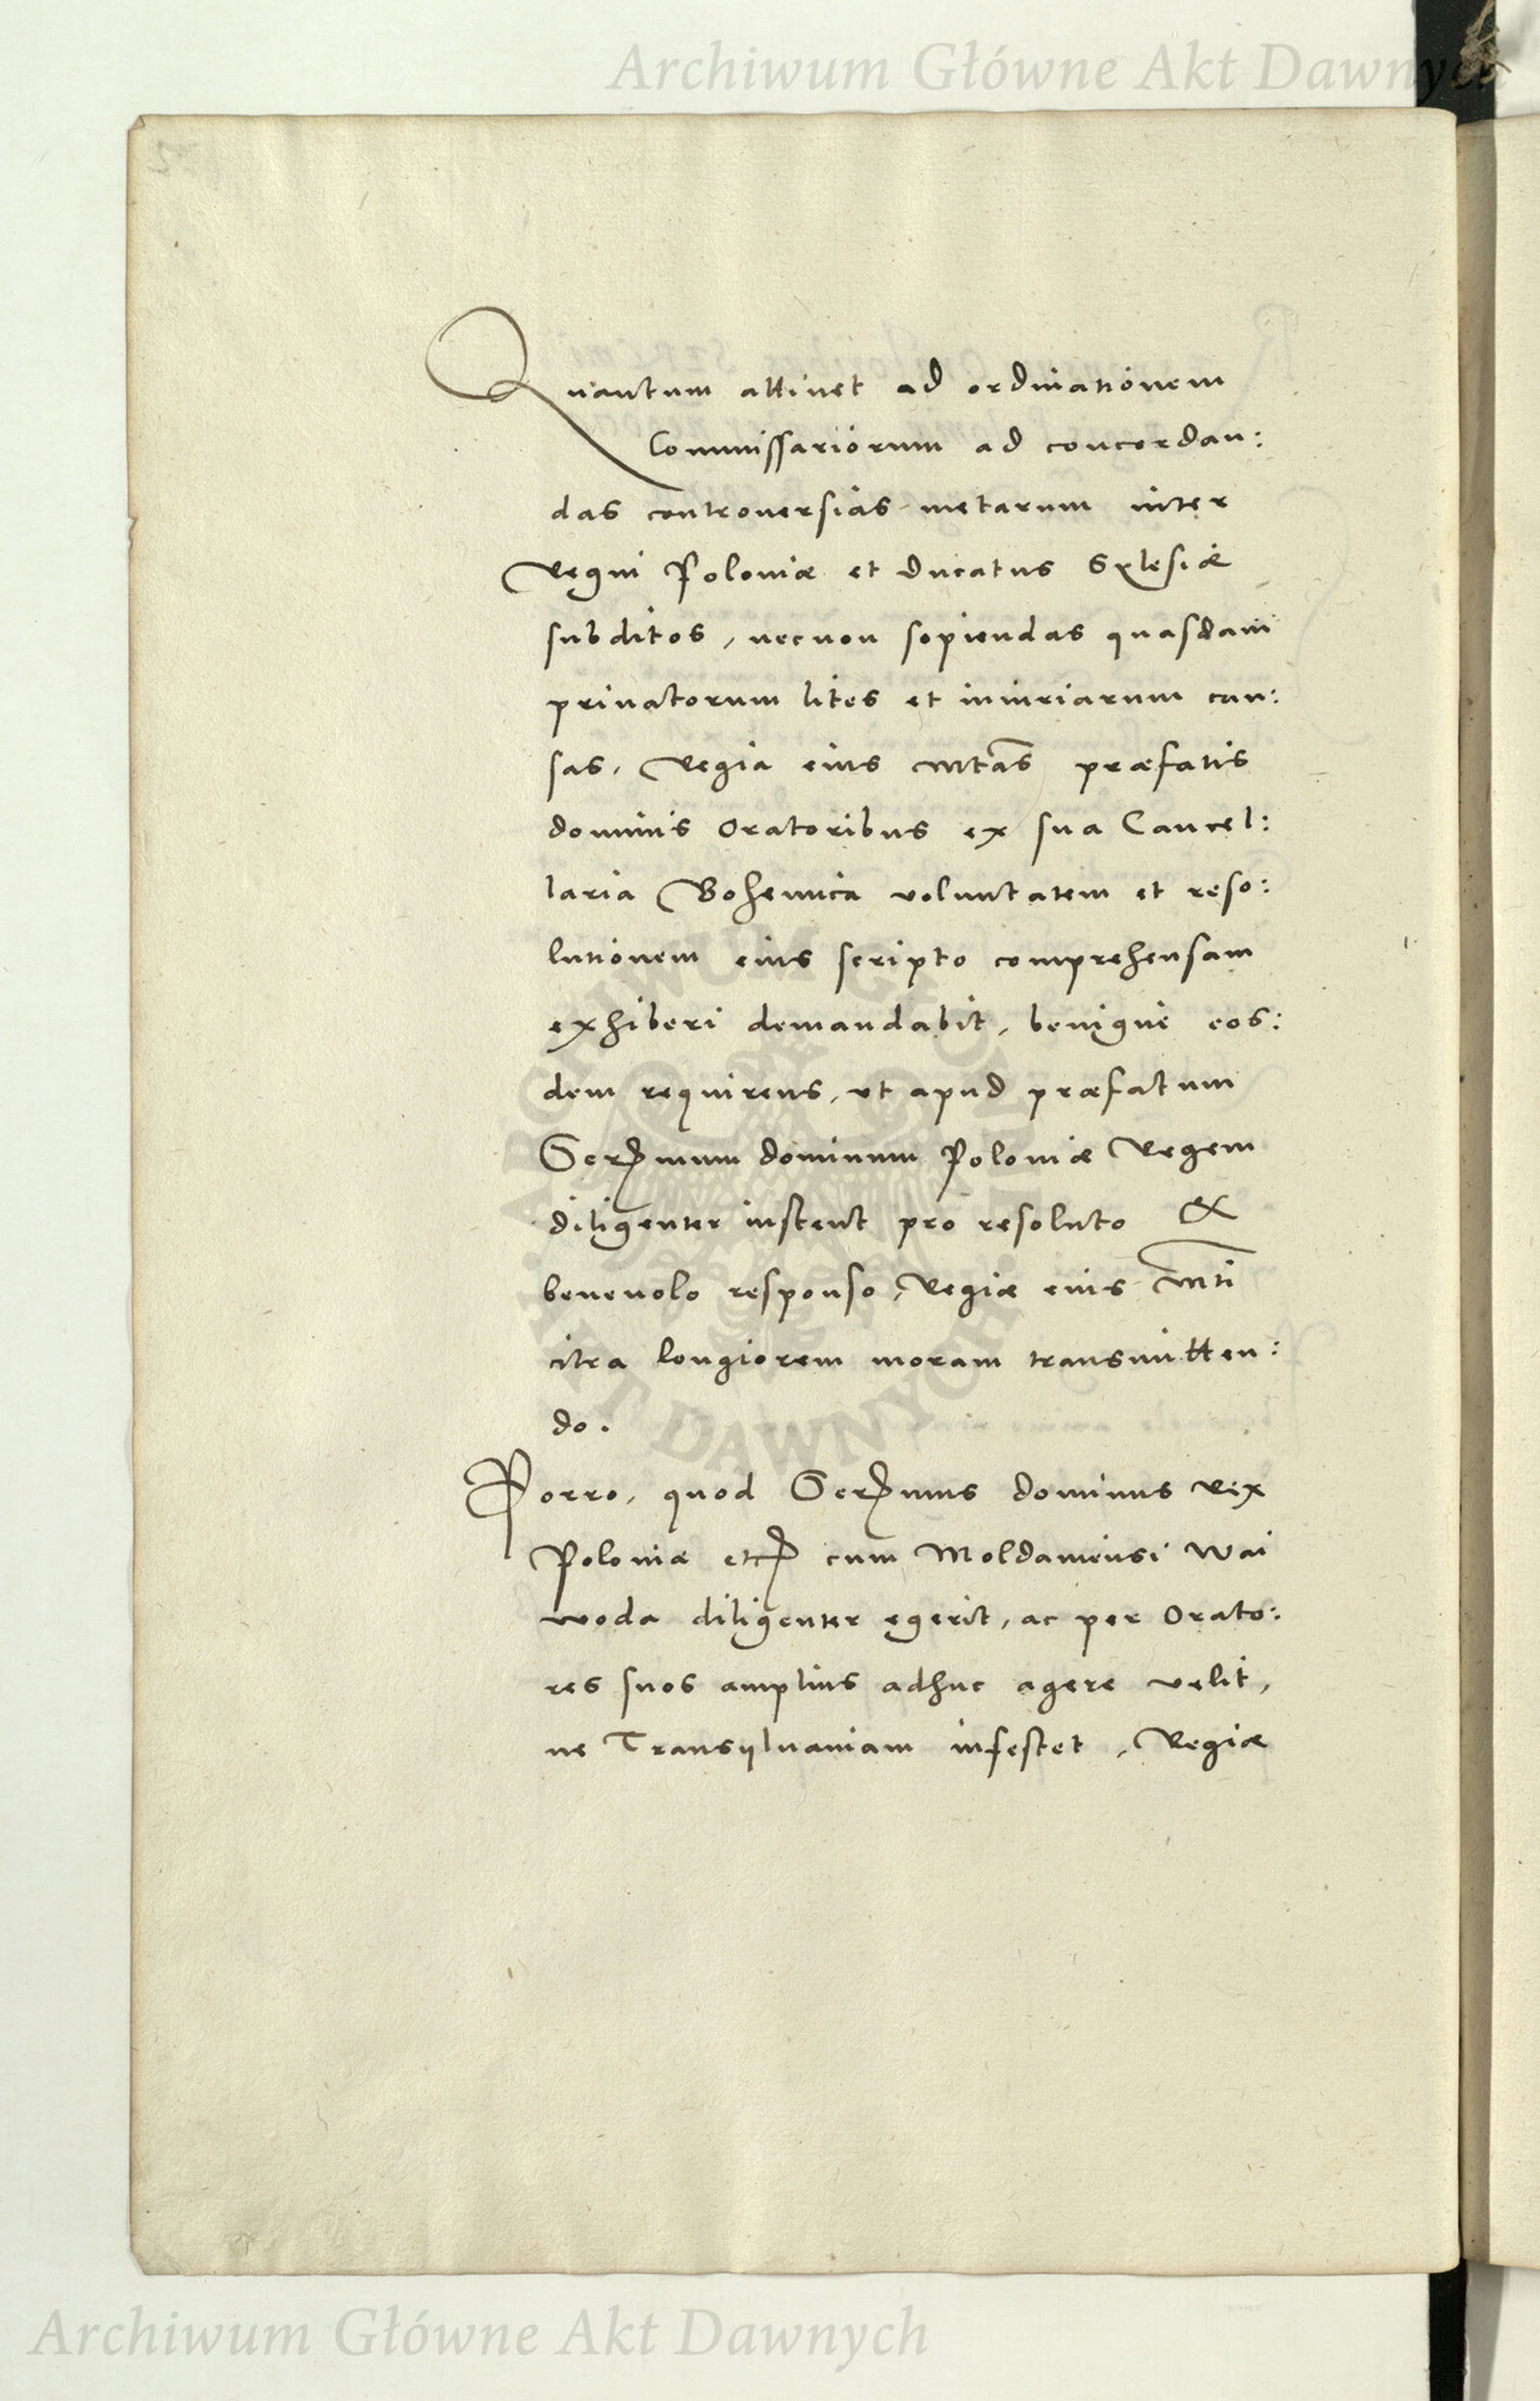 Archiwum Główne Akt Dawnych
Quantum attinet ad ordinationem
Commissariorum ad concordan:
das controuersias metarum inter
Regni Poloniæ et Ducatus Sylesiæ
subditos, necnon sopiendas quasdam
priuatorum lites et iniuriarum cau:
sas, Regia eius Mtas præfatis
dominis Oratoribus ex sua Cancel:
laria Bohemica voluntatem et reso:
lutionem eius scripto comprehensam
exhiberi demandabit, benigne eos:
dem requirens, vt apud præfatum
Sermum dominum Poloniæ Regem
diligenter instent pro resoluto &
beneuolo responso, Regiæ eius Mti
citra longiorem moram transmitten:
do.
Porro, quod Sermus dominus Rex
Poloniæ etc cum Moldauiensi Wai
woda diligenter egerit, ac per Orato:
res suos amplius adhuc agere velit,
ne Transyluaniam infestet, Regiæ
ARCHIWUM GŁÓWNE AKT DAWNYCH
Archiwum Główne Akt Dawnych